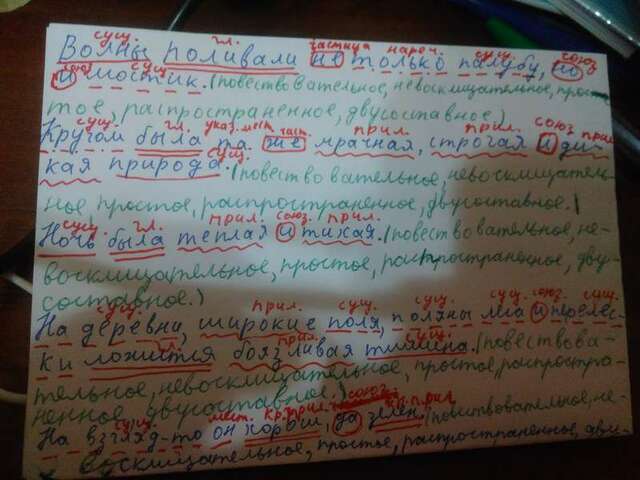 сущ. гл. частица нареч. сущ. союз
Волны поливали не только палубу, но
союз сущ.
и мостик. (повествовательное, невосклицательное, прос-
тое, распространенное, двусоставное.)
сущ. гл. указ. мест. част. прил. прил. союз прил.
Кругом была та же мрачная, строгая и ди-
сущ.
кая природа. (повествовательное, невосклицатель-
ное, простое, распространенное, двусоставное.)
сущ. гл. прил. союз. прил.
Ночь была теплая и тихая. (повествовательное, не-
восклицательное, простое, распространенное, дву-
составное.)
сущ. прил. сущ. сущ. сущ. союз. сущ.
На деревни, широкие поля, поляны леса и перелес-
гл. прил. сущ.
ки ложится боязливая тишина. (повествова-
тельное, невосклицательное, простое, распростра-
ненное, двусоставное.)
сущ. мест. кр. прил. союз кр. прил.
На взгляд-то он хорош, да зелен. (повествовательное, не-
восклицательное, простое, распространенное, дву-